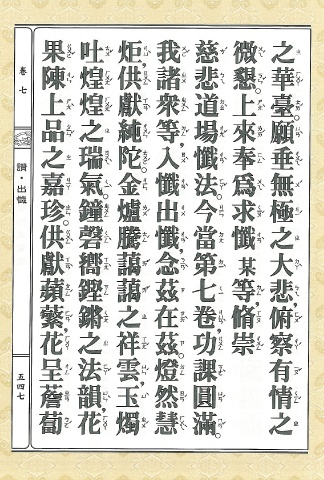 之華臺。願垂無極之大悲,俯察有情之
微懇。上來奉為求懺 某等,脩崇
慈悲道場懺法。今當第七卷,功課圓滿。
我諸眾等,入懺出懺,念茲在茲。燈然慧
炬,供獻純陀。金爐騰藹藹之祥雲,玉燭
吐煌煌之瑞氣。鐘磬嚮鏗鏘之法韻,花
果陳上品之嘉珍。供獻蘋蘩,花呈薝蔔
卷七
讚・出懺
五四七